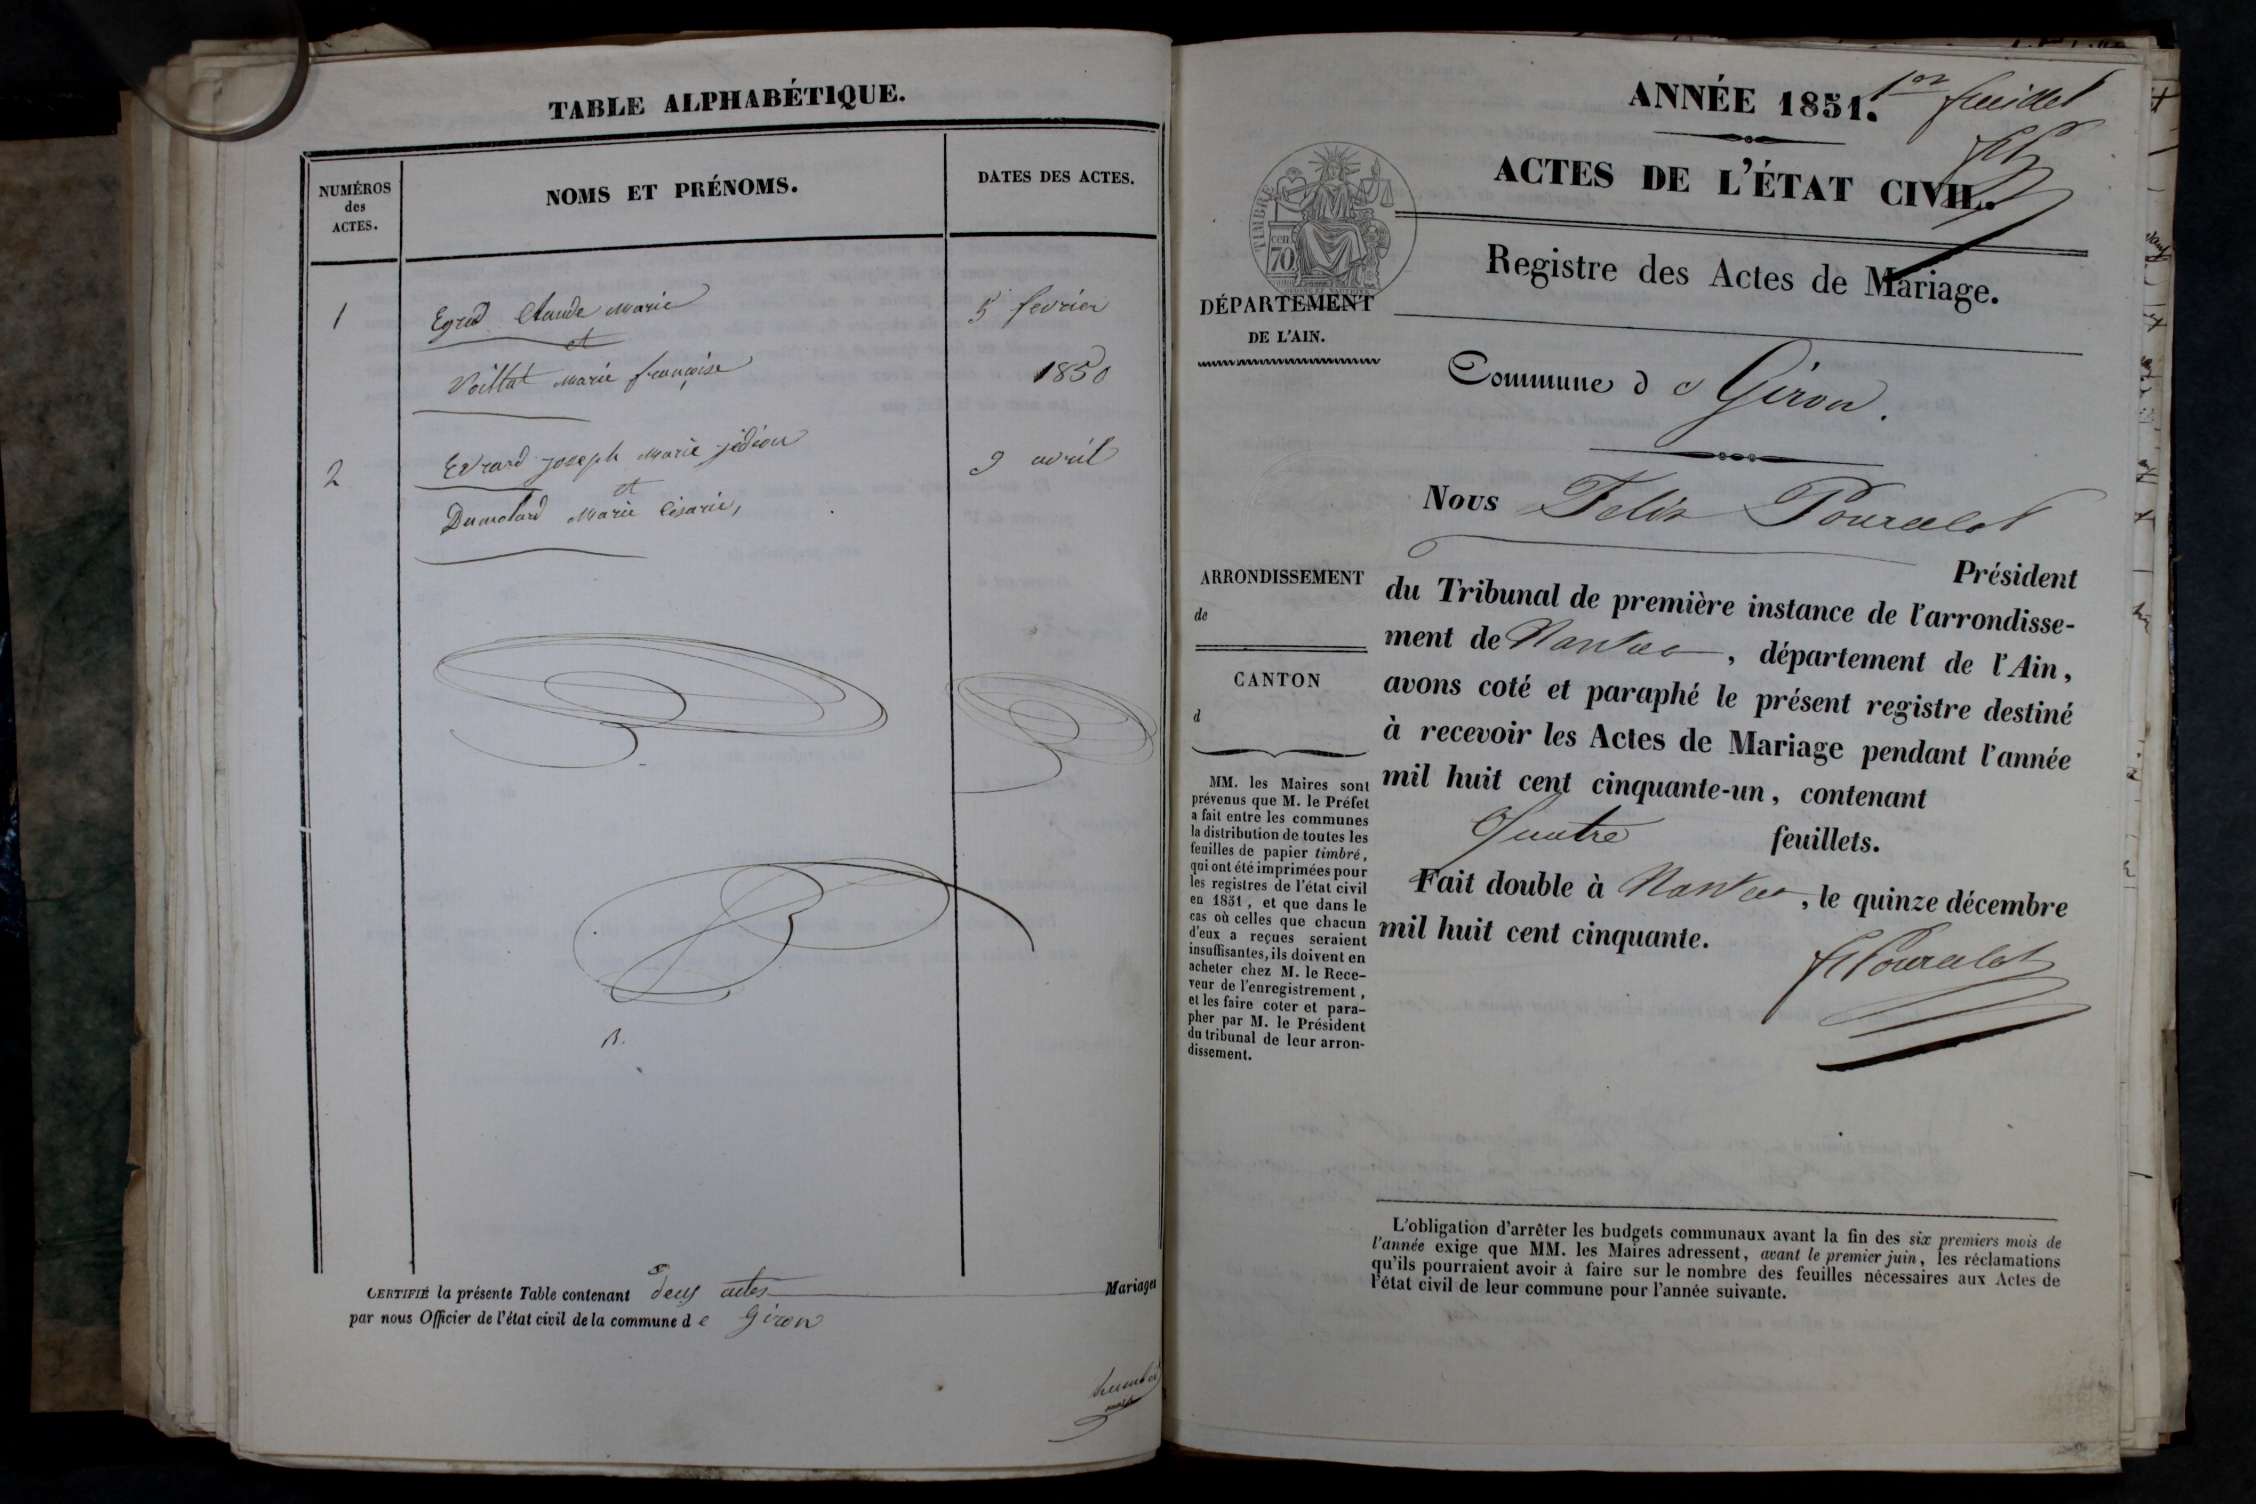 TABLE ALPHABÉTIQUE.
NUMÉROS
des
ACTES.
NOMS ET PRÉNOMS.
DATES DES ACTES.
1
Egraz Claude Marie
5 fevrier
et
Voillat Marie françoise
1850
2
Evrard joseph Marie jédéon
9 avril
et
Dumolard Marie Césarie,
CERTIFIÉ la présente Table contenant deux actes Mariages
par nous Officier de l'état civil de la commune de Giron
ANNÉE 1851.
1er feuillet
ACTES DE L'ÉTAT CIVIL.
TIMBRE
70
cen
Registre des Actes de Mariage.
DÉPARTEMENT
DE L'AIN.
Commune de Giron.
Nous Felix Pourcelot
Président
ARRONDISSEMENT
de
CANTON
d
du Tribunal de première instance de l'arrondisse-
ment de Nantua, département de l'Ain,
avons coté et paraphé le présent registre destiné
à recevoir les Actes de Mariage pendant l'année
mil huit cent cinquante-un, contenant
Quatre feuillets.
Fait double à Nantua, le quinze décembre
mil huit cent cinquante.
F Pourcelot
MM. les Maires sont
prévenus que M. le Préfet
a fait entre les communes
la distribution de toutes les
feuilles de papier timbré,
qui ont été imprimées pour
les registres de l'état civil
en 1851, et que dans le
cas où celles que chacun
d'eux a reçues seraient
insuffisantes, ils doivent en
acheter chez M. le Rece-
veur de l'enregistrement,
et les faire coter et para-
pher par M. le Président
du tribunal de leur arron-
dissement.
L'obligation d'arrêter les budgets communaux avant la fin des six premiers mois de
l'année exige que MM. les Maires adressent, avant le premier juin, les réclamations
qu'ils pourraient avoir à faire sur le nombre des feuilles nécessaires aux Actes de
l'état civil de leur commune pour l'année suivante.